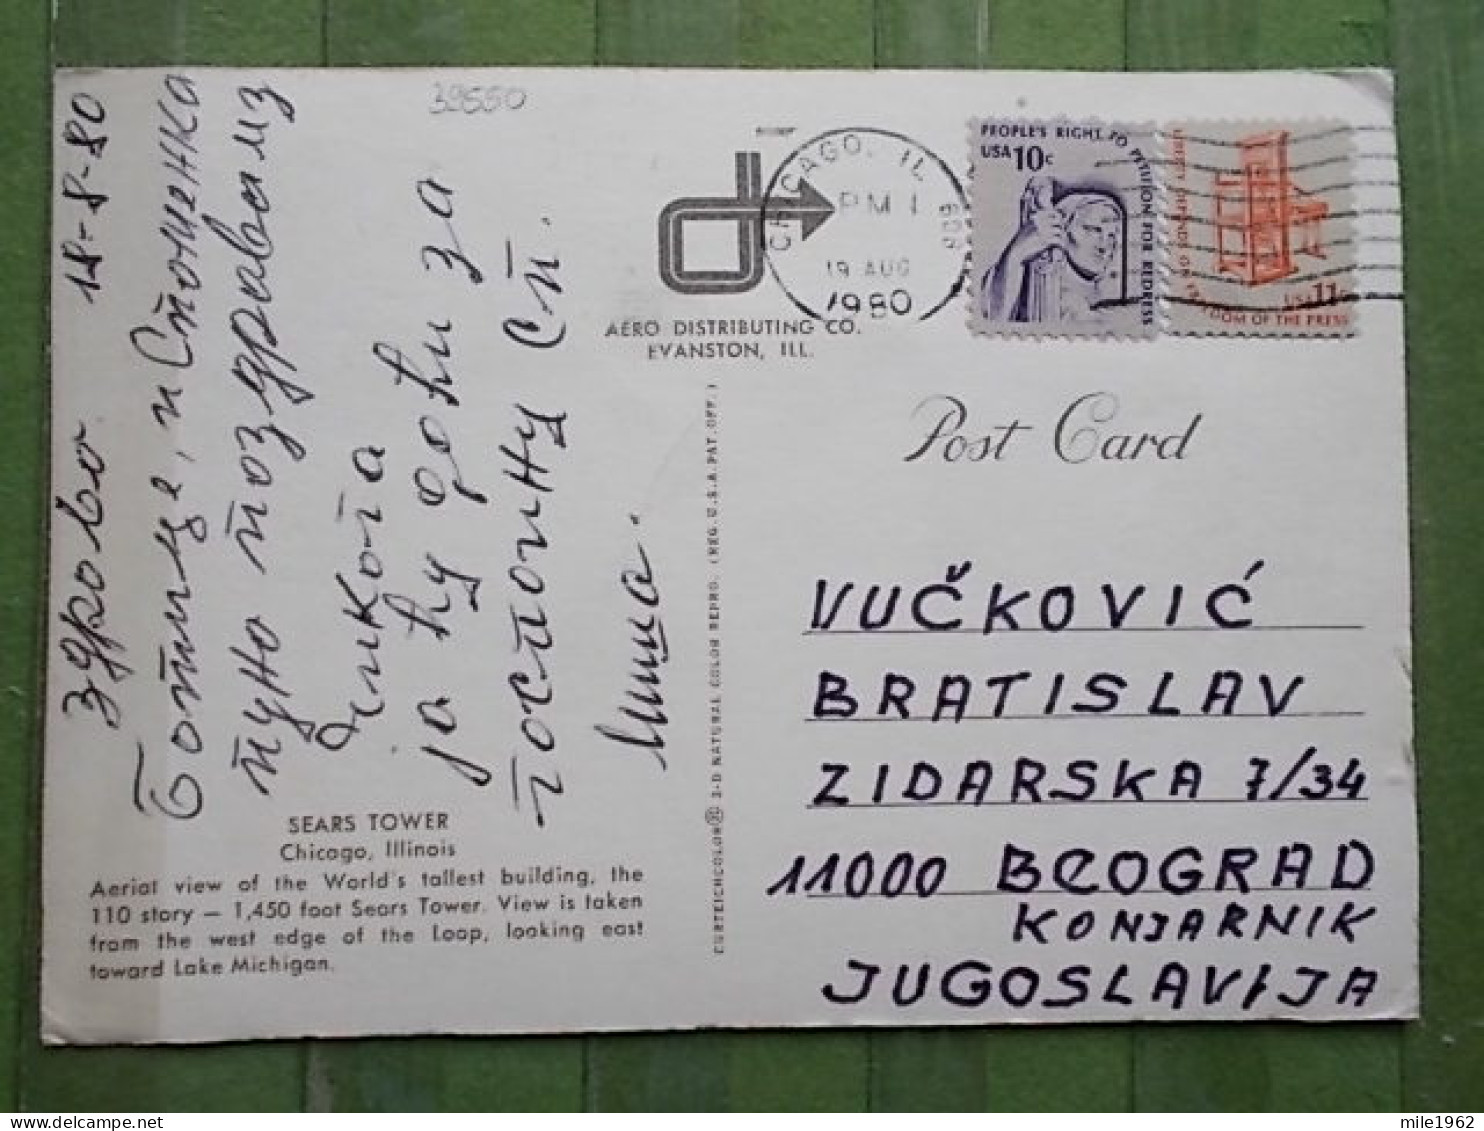 39550
здраво 18-8-80
Ботице, и Стоиенка
пуно поздрава из
Чикога
ја ћу доћи за
постоину Ст.
Миша.
SEARS TOWER
Chicago, Illinois
Aerial view of the World's tallest building, the
110 story — 1,450 foot Sears Tower. View is taken
from the west edge of the Loop, looking east
toward Lake Michigan.
AERO DISTRIBUTING CO.
EVANSTON, ILL.
CURTEICHCOLOR® 3-D NATURAL COLOR REPRO. (REG. U.S.A. PAT. OFF.)
CHICAGO, IL 606
PM 1
19 AUG
1980
PEOPLE'S RIGHT TO PETITION FOR REDRESS
USA 10c
LIBERTY DEPENDS ON FREEDOM OF THE PRESS
USA 11c
Post Card
VUČKOVIĆ
BRATISLAV
ZIDARSKA 7/34
11000 BEOGRAD
KONJARNIK
JUGOSLAVIJA
mile1962